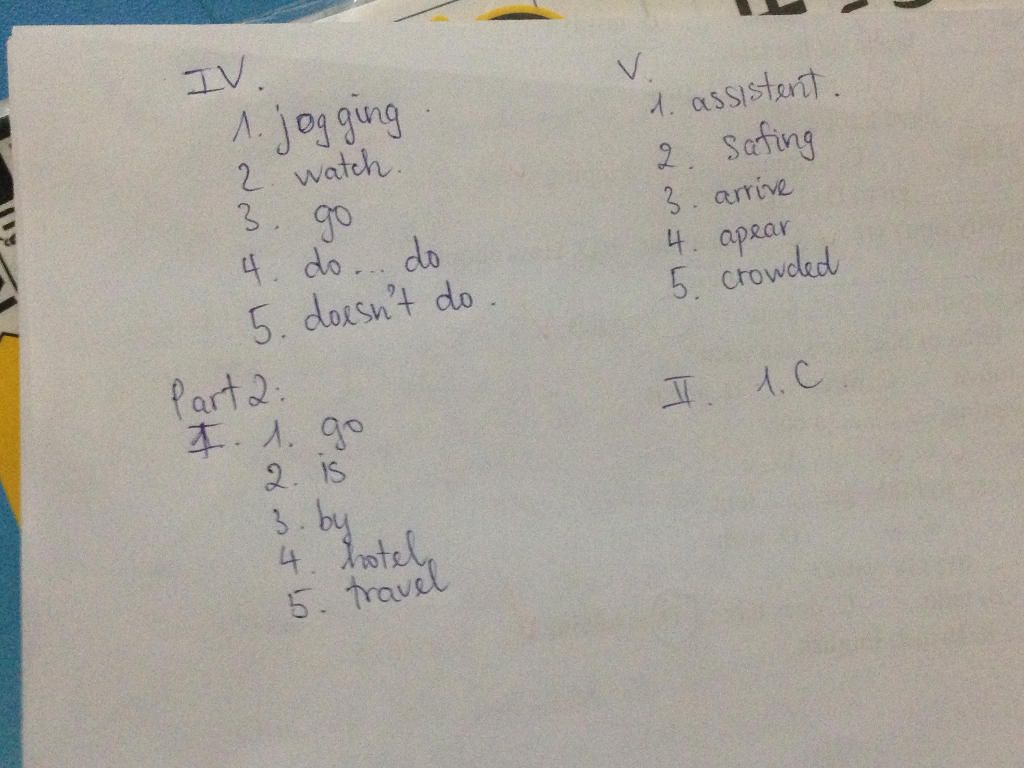 IV.
1. jogging.
2. watch.
3. go
4. do... do
5. doesn't do.
V.
1. assistent.
2. safing
3. arrive
4. apear
5. crowded
Part 2:
I. 1. go
2. is
3. by
4. hotel
5. travel
II. 1. C